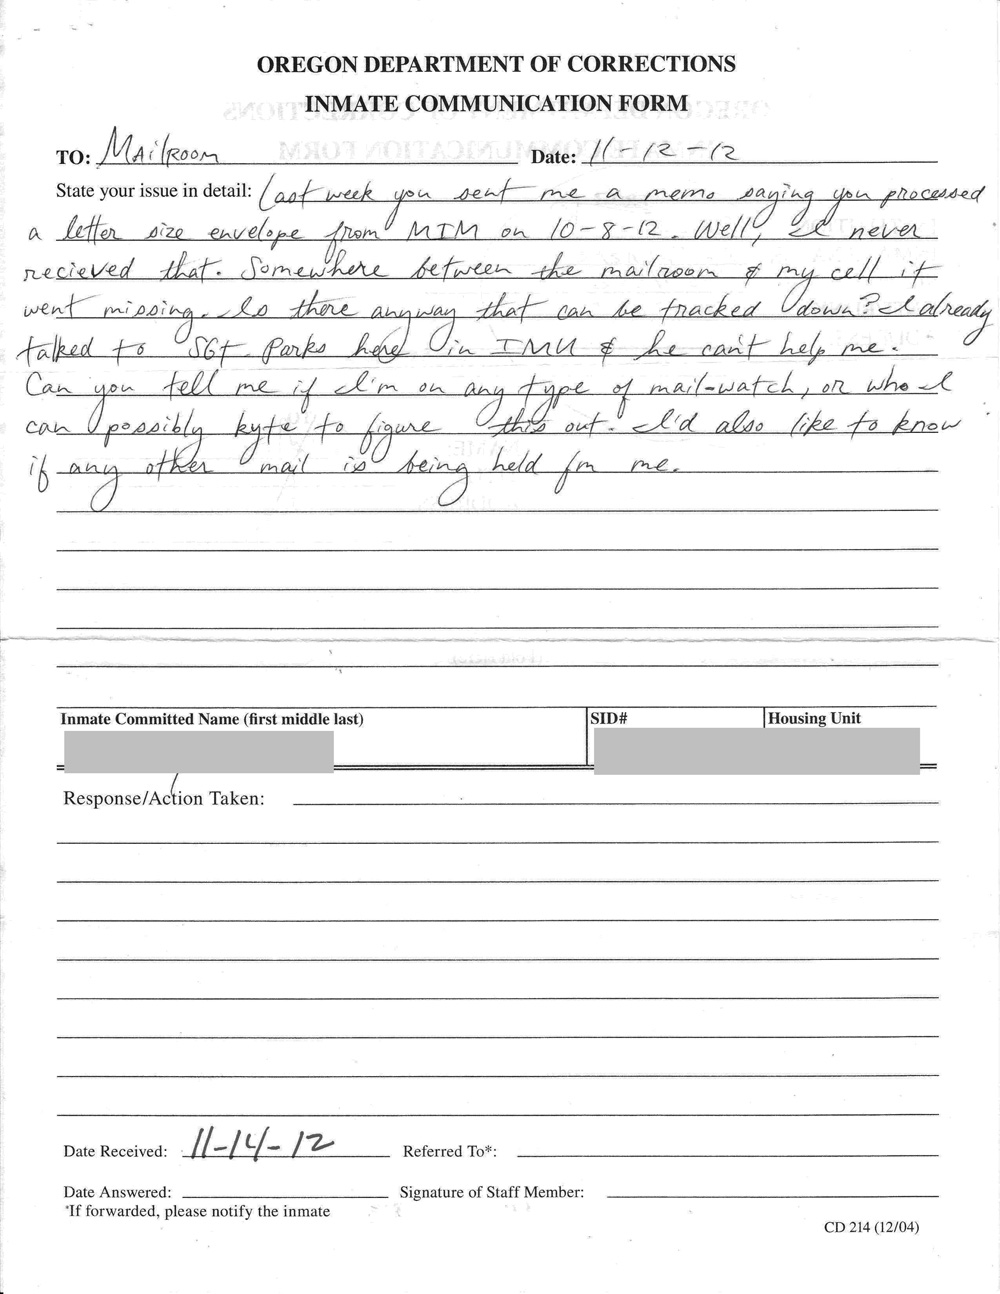 OREGON DEPARTMENT OF CORRECTIONS
INMATE COMMUNICATION FORM
TO: MAilRoom Date: 11-12-12
State your issue in detail: Last week you sent me a memo saying you processed
a letter size envelope from MIM on 10-8-12. Well, I never
recieved that. Somewhere between the mailroom & my cell it
went missing. Is there anyway that can be tracked down? I already
talked to SGt. Parks here in IMU & he can't help me.
Can you tell me if I'm on any type of mail-watch, or who I
can possibly kyte to figure this out. I'd also like to know
if any other mail is being held fm me.
Inmate Committed Name (first middle last) SID# Housing Unit
Response/Action Taken:
Date Received: 11-14-12 Referred To*:
Date Answered: Signature of Staff Member:
*If forwarded, please notify the inmate
CD 214 (12/04)